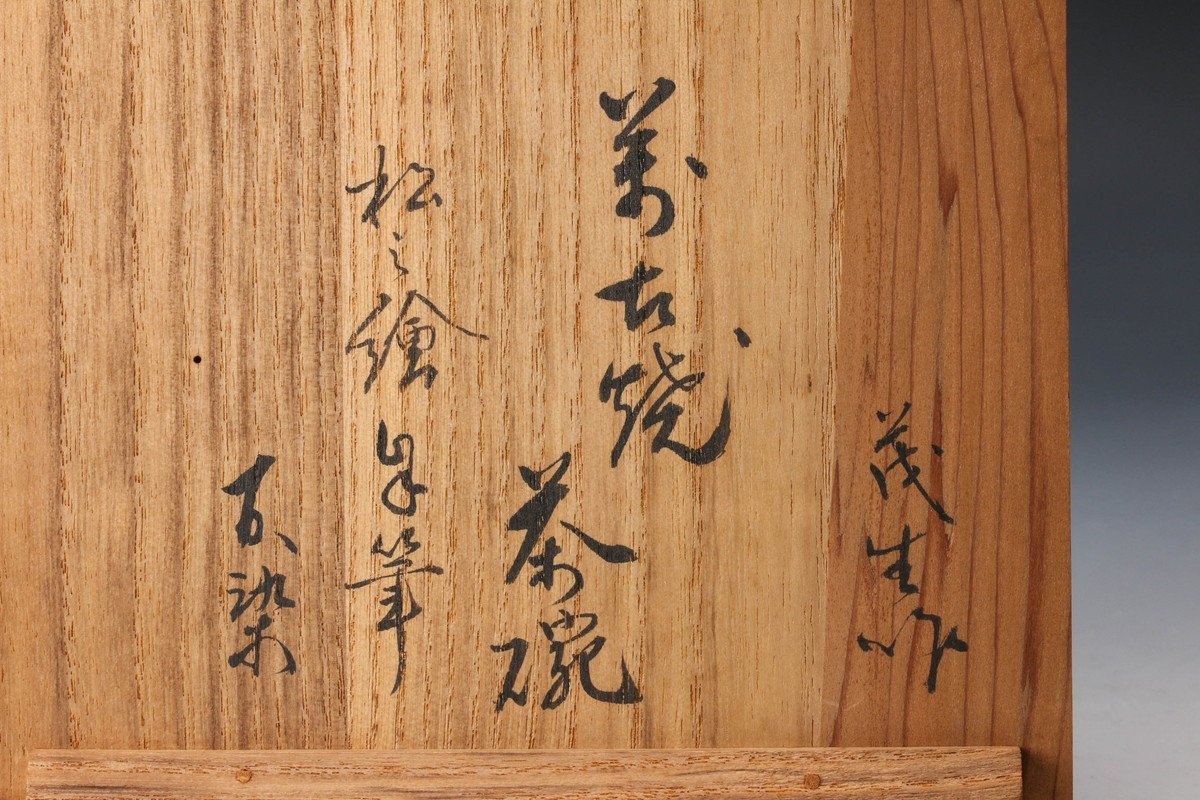 茂生作
萬古焼
茶碗
松之繪 筆
染